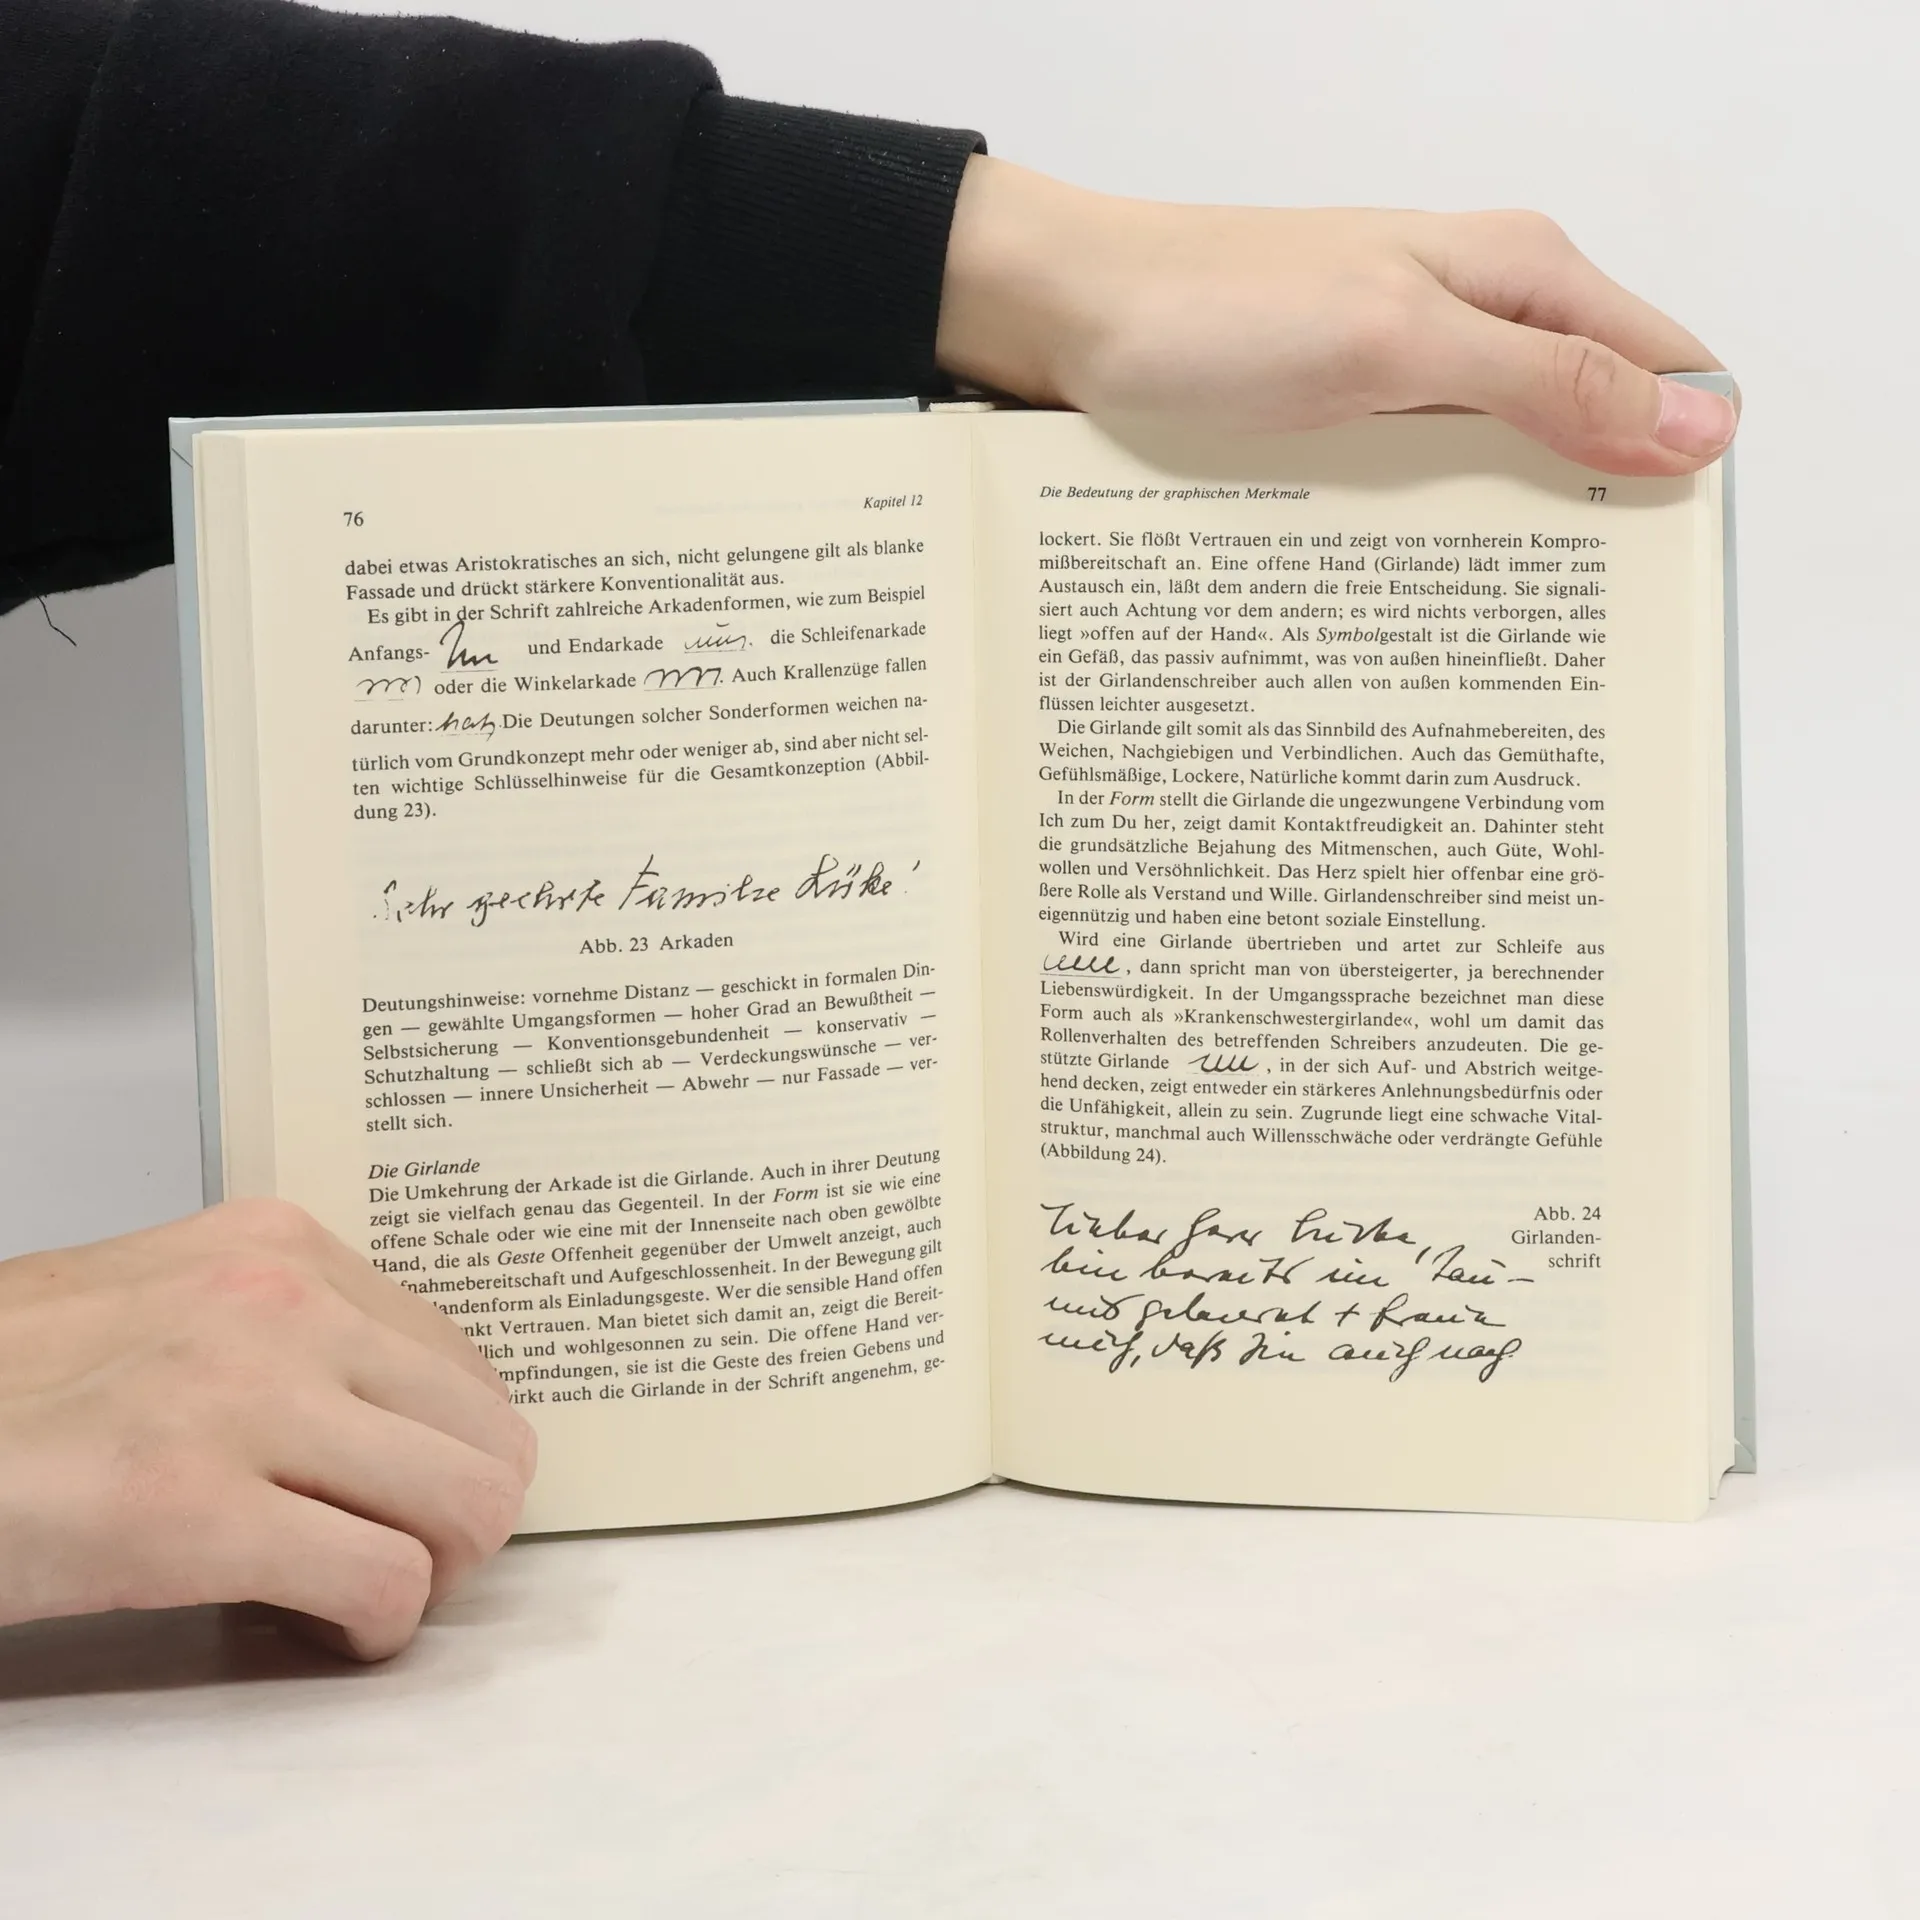 76
Kapitel 12
dabei etwas Aristokratisches an sich, nicht gelungene gilt als blanke
Fassade und drückt stärkere Konventionalität aus.
Es gibt in der Schrift zahlreiche Arkadenformen, wie zum Beispiel
Anfangs- und Endarkade die Schleifenarkade
oder die Winkelarkade . Auch Krallenzüge fallen
darunter: . Die Deutungen solcher Sonderformen weichen na-
türlich vom Grundkonzept mehr oder weniger ab, sind aber nicht sel-
ten wichtige Schlüsselhinweise für die Gesamtkonzeption (Abbil-
dung 23).
Sehr geehrte Familie Lüke!
Abb. 23 Arkaden
Deutungshinweise: vornehme Distanz — geschickt in formalen Din-
gen — gewählte Umgangsformen — hoher Grad an Bewußtheit —
Selbstsicherung — Konventionsgebundenheit — konservativ —
Schutzhaltung — schließt sich ab — Verdeckungswünsche — ver-
schlossen — innere Unsicherheit — Abwehr — nur Fassade — ver-
stellt sich.
Die Girlande
Die Umkehrung der Arkade ist die Girlande. Auch in ihrer Deutung
zeigt sie vielfach genau das Gegenteil. In der Form ist sie wie eine
offene Schale oder wie eine mit der Innenseite nach oben gewölbte
Hand, die als Geste Offenheit gegenüber der Umwelt anzeigt, auch
fnahmebereitschaft und Aufgeschlossenheit. In der Bewegung gilt
landenform als Einladungsgeste. Wer die sensible Hand offen
nkt Vertrauen. Man bietet sich damit an, zeigt die Bereit-
lich und wohlgesonnen zu sein. Die offene Hand ver-
mpfindungen, sie ist die Geste des freien Gebens und
wirkt auch die Girlande in der Schrift angenehm, ge-
Die Bedeutung der graphischen Merkmale
77
lockert. Sie flößt Vertrauen ein und zeigt von vornherein Kompro-
mißbereitschaft an. Eine offene Hand (Girlande) lädt immer zum
Austausch ein, läßt dem andern die freie Entscheidung. Sie signali-
siert auch Achtung vor dem andern; es wird nichts verborgen, alles
liegt »offen auf der Hand«. Als Symbolgestalt ist die Girlande wie
ein Gefäß, das passiv aufnimmt, was von außen hineinfließt. Daher
ist der Girlandenschreiber auch allen von außen kommenden Ein-
flüssen leichter ausgesetzt.
Die Girlande gilt somit als das Sinnbild des Aufnahmebereiten, des
Weichen, Nachgiebigen und Verbindlichen. Auch das Gemüthafte,
Gefühlsmäßige, Lockere, Natürliche kommt darin zum Ausdruck.
In der Form stellt die Girlande die ungezwungene Verbindung vom
Ich zum Du her, zeigt damit Kontaktfreudigkeit an. Dahinter steht
die grundsätzliche Bejahung des Mitmenschen, auch Güte, Wohl-
wollen und Versöhnlichkeit. Das Herz spielt hier offenbar eine grö-
ßere Rolle als Verstand und Wille. Girlandenschreiber sind meist un-
eigennützig und haben eine betont soziale Einstellung.
Wird eine Girlande übertrieben und artet zur Schleife aus
, dann spricht man von übersteigerter, ja berechnender
Liebenswürdigkeit. In der Umgangssprache bezeichnet man diese
Form auch als »Krankenschwestergirlande«, wohl um damit das
Rollenverhalten des betreffenden Schreibers anzudeuten. Die ge-
stützte Girlande , in der sich Auf- und Abstrich weitge-
hend decken, zeigt entweder ein stärkeres Anlehnungsbedürfnis oder
die Unfähigkeit, allein zu sein. Zugrunde liegt eine schwache Vital-
struktur, manchmal auch Willensschwäche oder verdrängte Gefühle
(Abbildung 24).
Abb. 24
Girlanden-
schrift
Lieber Herr
bin bereits im
+ freue
mich, daß Sie auch noch